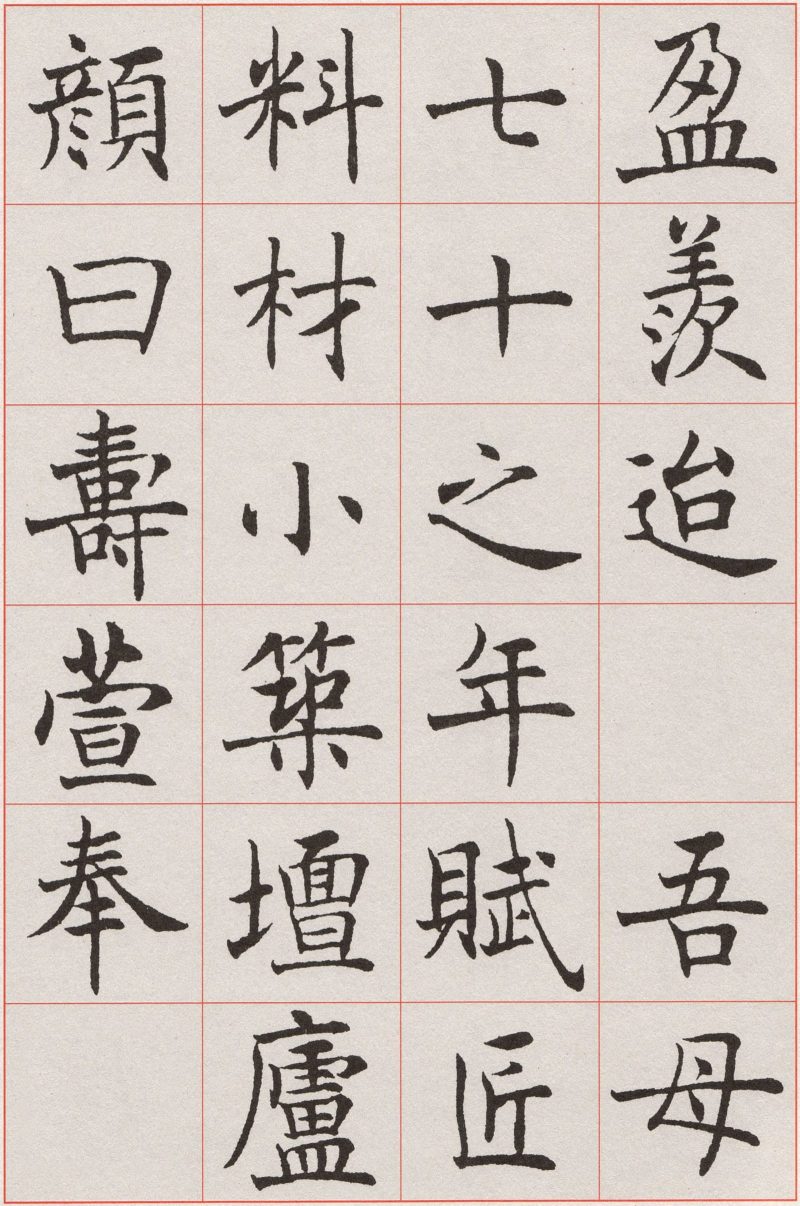 盈羨迨　吾母
七十之年賦匠
料材小築壇廬
顏曰壽萱奉